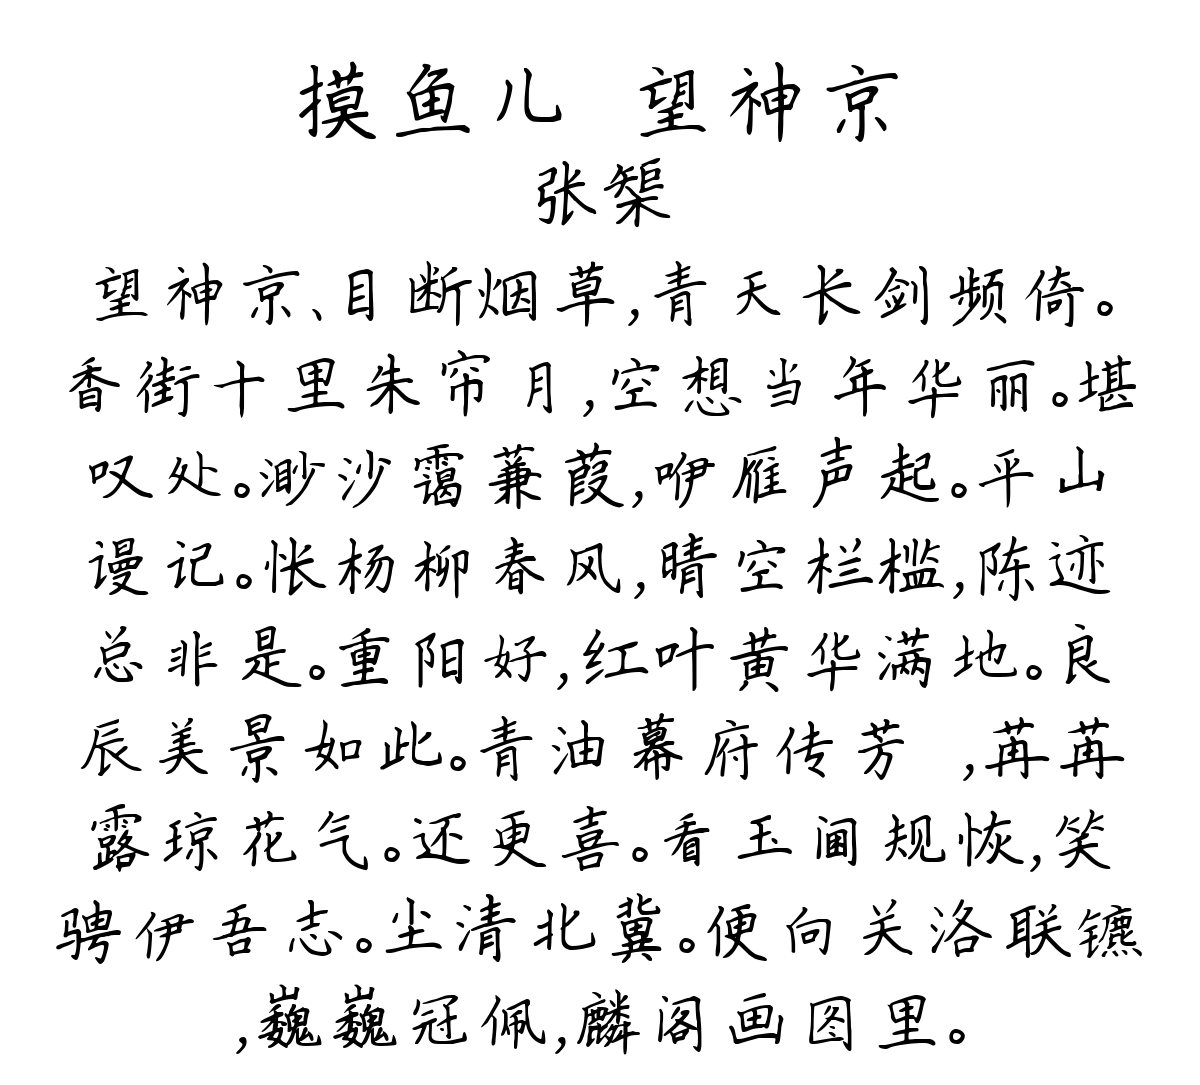 摸鱼儿 望神京
张榘
望神京、目断烟草,青天长剑频倚。
香街十里朱帘月,空想当年华丽。堪
叹处。渺沙霭蒹葭,咿雁声起。平山
谩记。怅杨柳春风,晴空栏槛,陈迹
总非是。重阳好,红叶黄华满地。良
辰美景如此。青油幕府传芳 ,苒苒
露琼花气。还更喜。看玉阃规恢,笑
骋伊吾志。尘清北冀。便向关洛联镳
,巍巍冠佩,麟阁画图里。